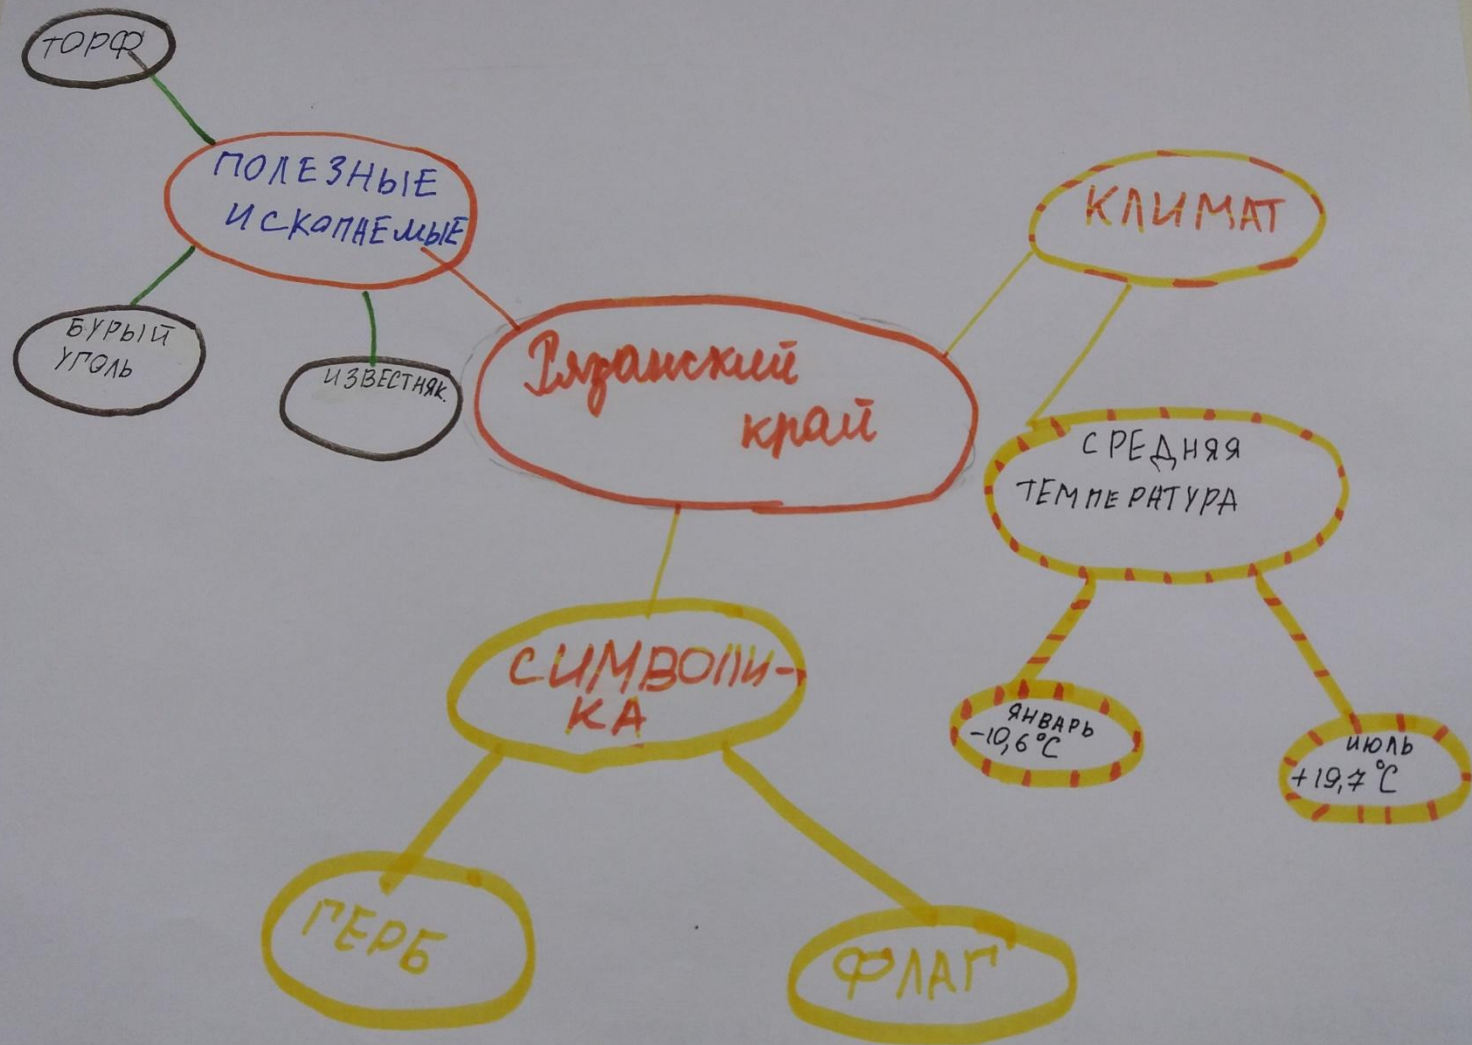 ТОРФ
ПОЛЕЗНЫЕ
ИСКОПАЕМЫЕ
БУРЫЙ
УГОЛЬ
ИЗВЕСТНЯК.
Рязанский
край
КЛИМАТ
СРЕДНЯЯ
ТЕМПЕРАТУРА
ЯНВАРЬ
-10,6°С
ИЮЛЬ
+19,7°С
СИМВОЛИ-
КА
ГЕРБ
ФЛАГ